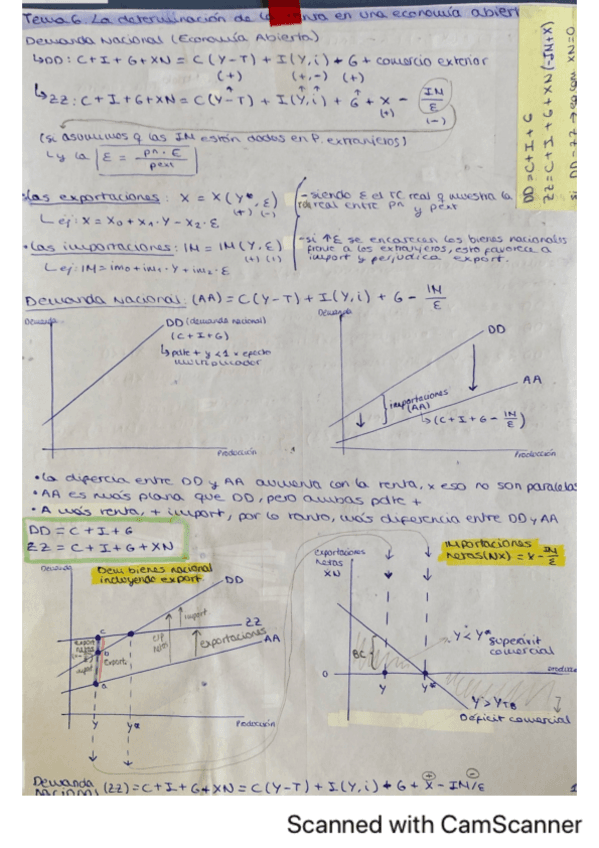 Tema 6. La determinación de la renta en una economía abiert
Demanda Nacional (Economía Abierta)
↳ DD: C+I+G+XN = C(Y-T) + I(Y,i) + G + comercio exterior
(+) (+,-) (+)
↳ ZZ: C+I+G+XN = C(Y-T) + I(Y,i) + G + X - IM/Ɛ
(+) (-)
(si asumimos q las IM están dados en P. extranjeros)
↳ y la Ɛ = Pn·E / Pext
DD = C+I+G
ZZ = C+I+G+XN (-IM+X)
si DD=ZZ → XN=0
·Las exportaciones: X = X(Y*, Ɛ)
(+) (-)
↳ ej: X = X0 + X1·Y - X2·Ɛ
- siendo Ɛ el TC real q muestra la
real entre Pn y Pext
·Las importaciones: IM = IM(Y, Ɛ)
(+) (+)
↳ ej: IM = im0 + im1·Y + im2·Ɛ
- si ↑Ɛ se encarecen los bienes nacionales
frente a los extranjeros, esto favorece a
import y perjudica export.
Demanda Nacional: (AA) = C(Y-T) + I(Y,i) + G - IM/Ɛ
Demanda
DD (demanda nacional)
(C+I+G)
↳ pdte + y <1 x efecto
multiplicador
Producción
Demanda
DD
AA
importaciones
(AA)
↳ (C+I+G - IM/Ɛ)
Producción
·La difercia entre DD y AA aumenta con la renta, x eso no son paralelas
·AA es más plana que DD, pero ambas pdte +
·A más renta, + import, por lo tanto, más diferencia entre DD y AA
DD = C+I+G
ZZ = C+I+G+XN
Demanda
Dem bienes nacional
incluyendo export
DD
ZZ
AA
import
exportaciones
export
C
b
a
Y
Y*
Producción
Exportaciones
netas
XN
Importaciones
netas (NX) = X - IM/Ɛ
BC
Y < Y* superávit
comercial
0
Y
Y*
Y > YTB
Déficit comercial
Demanda
Nacional (ZZ) = C+I+G+XN = C(Y-T) + I(Y,i) + G + X - IM/Ɛ
1
Scanned with CamScanner